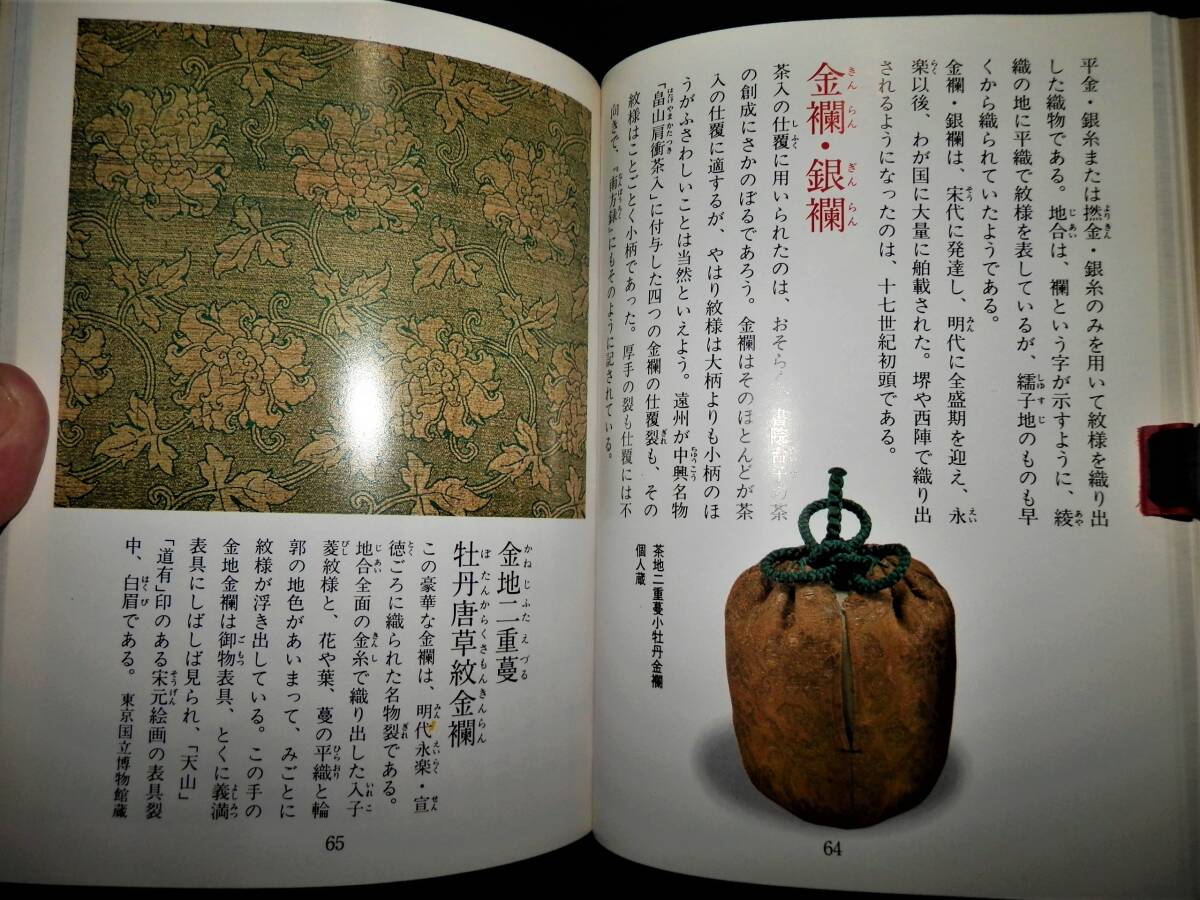 金襴・銀襴
きんらん ぎんらん
平金・銀糸または撚金・銀糸のみを用いて紋様を織り出
した織物である。地合は、襴という字が示すように、綾
織の地に平織で紋様を表しているが、繻子地のものも早
くから織られていたようである。
金襴・銀襴は、宋代に発達し、明代に全盛期を迎え、永
楽以後、わが国に大量に舶載された。堺や西陣で織り出
されるようになったのは、十七世紀初頭である。
茶入の仕覆に用いられたのは、おそら 書院 茶
の創成にさかのぼるであろう。金襴はそのほとんどが茶
入の仕覆に適するが、やはり紋様は大柄よりも小柄のほ
うがふさわしいことは当然といえよう。遠州が中興名物
「畠山肩衝茶入」に付与した四つの金襴の仕覆裂も、その
紋様はことごとく小柄であった。厚手の裂も仕覆には不
向きで、『南方録』にもそのように記されている。
茶地二重蔓小牡丹金襴
個人蔵
64
金地二重蔓
かねじふたえづる
牡丹唐草紋金襴
ぼたんからくさもんきんらん
この豪華な金襴は、明代永楽・宣
徳ごろに織られた名物裂である。
地合全面の金糸で織り出した入子
菱紋様と、花や葉、蔓の平織と輪
郭の地色があいまって、みごとに
紋様が浮き出している。この手の
金地金襴は御物表具、とくに義満
表具にしばしば見られ、「天山」
「道有」印のある宋元絵画の表具裂
中、白眉である。 東京国立博物館蔵
65